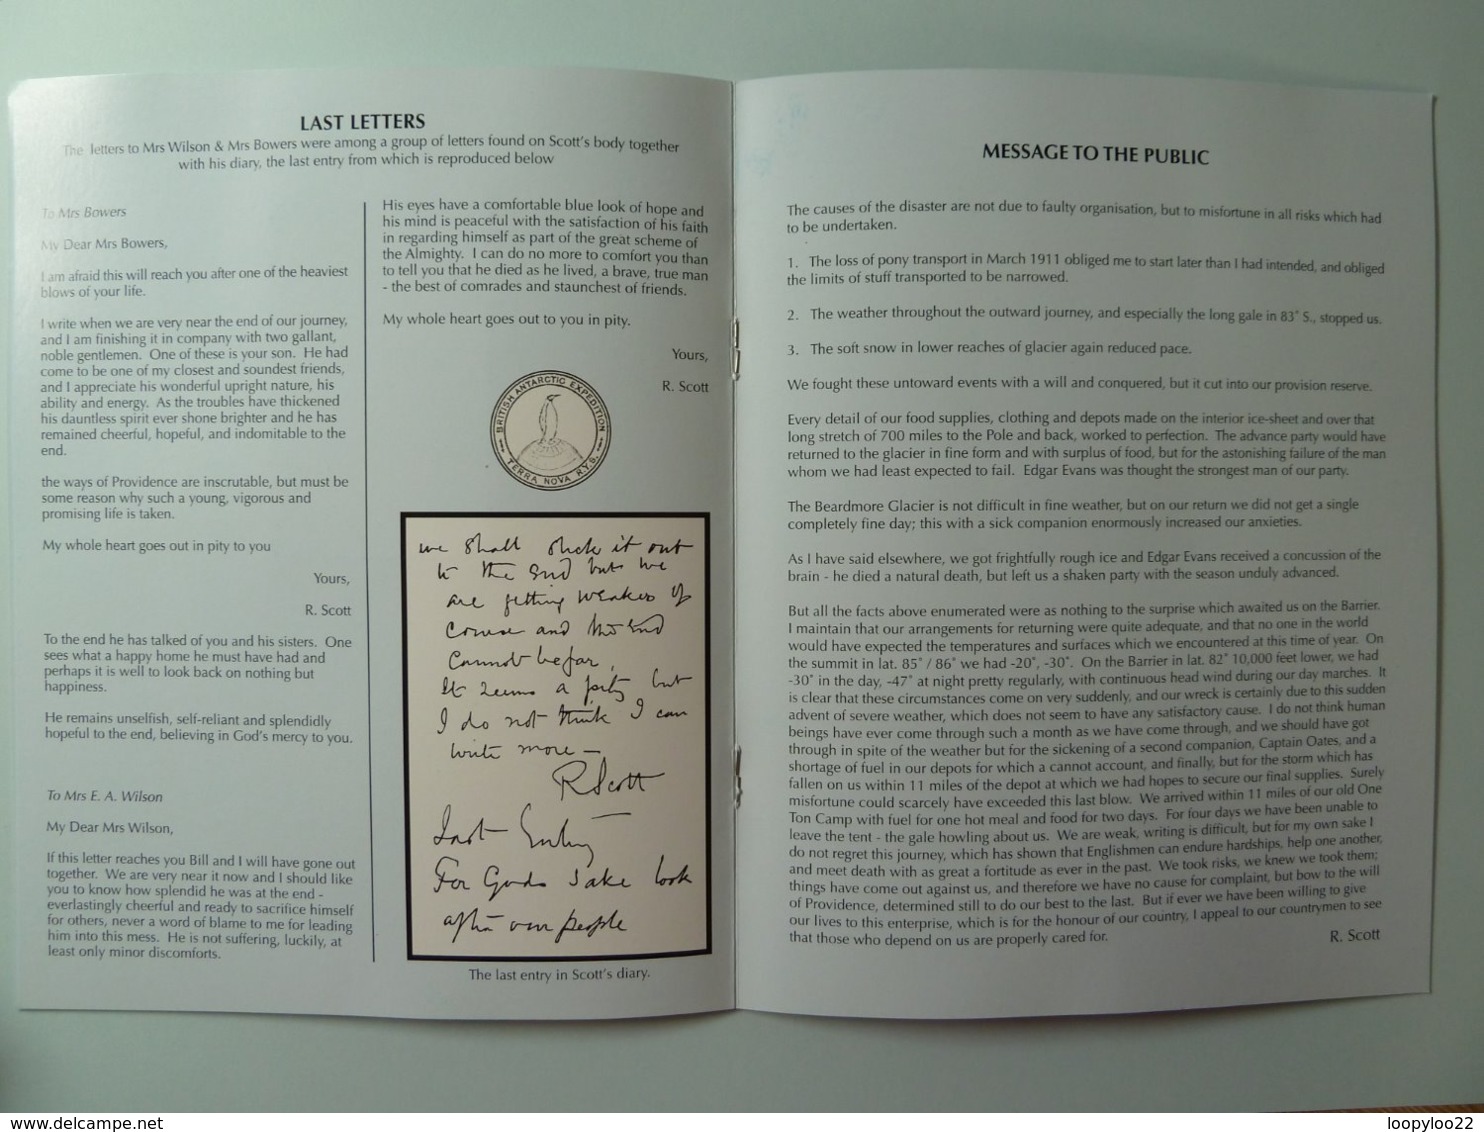 LAST LETTERS
The letters to Mrs Wilson & Mrs Bowers were among a group of letters found on Scott's body together
with his diary, the last entry from which is reproduced below
To Mrs Bowers
My Dear Mrs Bowers,
I am afraid this will reach you after one of the heaviest
blows of your life.
I write when we are very near the end of our journey,
and I am finishing it in company with two gallant,
noble gentlemen. One of these is your son. He had
come to be one of my closest and soundest friends,
and I appreciate his wonderful upright nature, his
ability and energy. As the troubles have thickened
his dauntless spirit ever shone brighter and he has
remained cheerful, hopeful, and indomitable to the
end.
the ways of Providence are inscrutable, but must be
some reason why such a young, vigorous and
promising life is taken.
My whole heart goes out in pity to you
Yours,
R. Scott
To the end he has talked of you and his sisters. One
sees what a happy home he must have had and
perhaps it is well to look back on nothing but
happiness.
He remains unselfish, self-reliant and splendidly
hopeful to the end, believing in God's mercy to you.
To Mrs E. A. Wilson
My Dear Mrs Wilson,
If this letter reaches you Bill and I will have gone out
together. We are very near it now and I should like
you to know how splendid he was at the end -
everlastingly cheerful and ready to sacrifice himself
for others, never a word of blame to me for leading
him into this mess. He is not suffering, luckily, at
least only minor discomforts.
His eyes have a comfortable blue look of hope and
his mind is peaceful with the satisfaction of his faith
in regarding himself as part of the great scheme of
the Almighty. I can do no more to comfort you than
to tell you that he died as he lived, a brave, true man
- the best of comrades and staunchest of friends.
My whole heart goes out to you in pity.
Yours,
R. Scott
BRITISH ANTARCTIC EXPEDITION
TERRA NOVA R.Y.S.
we shall stick it out
to the end but we
are getting weaker of
course and the end
cannot be far.
It seems a pity but
I do not think I can
write more —
R Scott
Last Entry
For Gods sake look
after our people
The last entry in Scott's diary.
MESSAGE TO THE PUBLIC
The causes of the disaster are not due to faulty organisation, but to misfortune in all risks which had
to be undertaken.
1. The loss of pony transport in March 1911 obliged me to start later than I had intended, and obliged
the limits of stuff transported to be narrowed.
2. The weather throughout the outward journey, and especially the long gale in 83° S., stopped us.
3. The soft snow in lower reaches of glacier again reduced pace.
We fought these untoward events with a will and conquered, but it cut into our provision reserve.
Every detail of our food supplies, clothing and depots made on the interior ice-sheet and over that
long stretch of 700 miles to the Pole and back, worked to perfection. The advance party would have
returned to the glacier in fine form and with surplus of food, but for the astonishing failure of the man
whom we had least expected to fail. Edgar Evans was thought the strongest man of our party.
The Beardmore Glacier is not difficult in fine weather, but on our return we did not get a single
completely fine day; this with a sick companion enormously increased our anxieties.
As I have said elsewhere, we got frightfully rough ice and Edgar Evans received a concussion of the
brain - he died a natural death, but left us a shaken party with the season unduly advanced.
But all the facts above enumerated were as nothing to the surprise which awaited us on the Barrier.
I maintain that our arrangements for returning were quite adequate, and that no one in the world
would have expected the temperatures and surfaces which we encountered at this time of year. On
the summit in lat. 85° / 86° we had -20°, -30°. On the Barrier in lat. 82° 10,000 feet lower, we had
-30° in the day, -47° at night pretty regularly, with continuous head wind during our day marches. It
is clear that these circumstances come on very suddenly, and our wreck is certainly due to this sudden
advent of severe weather, which does not seem to have any satisfactory cause. I do not think human
beings have ever come through such a month as we have come through, and we should have got
through in spite of the weather but for the sickening of a second companion, Captain Oates, and a
shortage of fuel in our depots for which a cannot account, and finally, but for the storm which has
fallen on us within 11 miles of the depot at which we had hopes to secure our final supplies. Surely
misfortune could scarcely have exceeded this last blow. We arrived within 11 miles of our old One
Ton Camp with fuel for one hot meal and food for two days. For four days we have been unable to
leave the tent - the gale howling about us. We are weak, writing is difficult, but for my own sake I
do not regret this journey, which has shown that Englishmen can endure hardships, help one another,
and meet death with as great a fortitude as ever in the past. We took risks, we knew we took them;
things have come out against us, and therefore we have no cause for complaint, but bow to the will
of Providence, determined still to do our best to the last. But if ever we have been willing to give
our lives to this enterprise, which is for the honour of our country, I appeal to our countrymen to see
that those who depend on us are properly cared for.
R. Scott
www.delcampe.net
loopyloo22